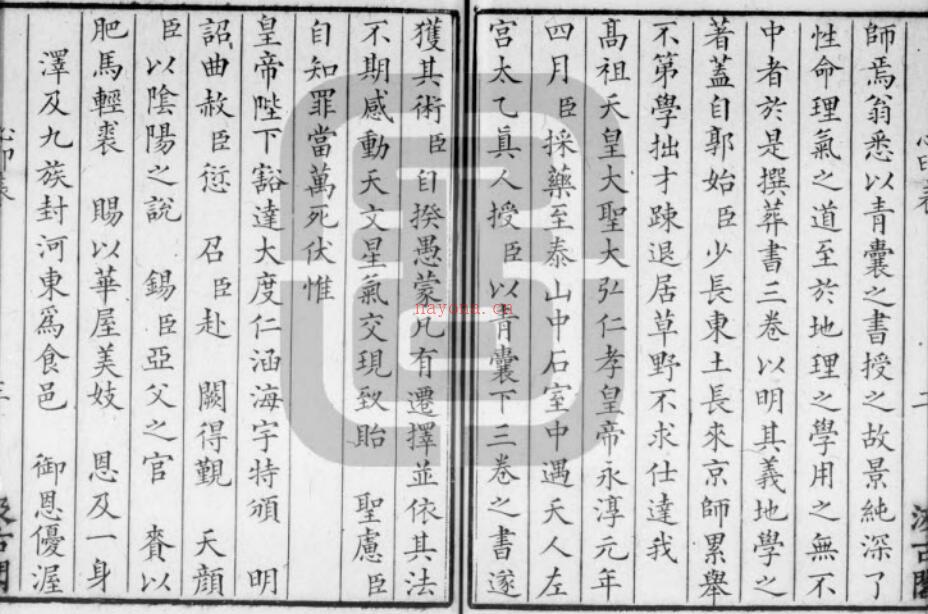 師焉翁悉以青囊之書授之故景純深了
性命理氣之道至於地理之學用之無不
中者於是撰葬書三卷以明其義地學之
著蓋自郭始臣少長東土長來京師累舉
不第學拙才踈退居草野不求仕達我
高祖天皇大聖大弘仁孝皇帝永淳元年
四月臣採藥至泰山中石室中遇天人左
宫太乙真人授臣以青囊下三卷之書遂
獲其術臣自揆愚蒙凡有遷擇並依其法
不期感動天文星氣交現致貽 聖慮臣
自知罪當萬死伏惟
皇帝陛下豁達大度仁涵海宇特頒 明
詔曲赦臣愆 召臣赴 闕得覲 天顔
臣以隂陽之說 錫臣亞父之官 賚以
肥馬輕裘 賜以華屋美妓 恩及一身
澤及九族封河東爲食邑 御恩優渥
nayona.cn